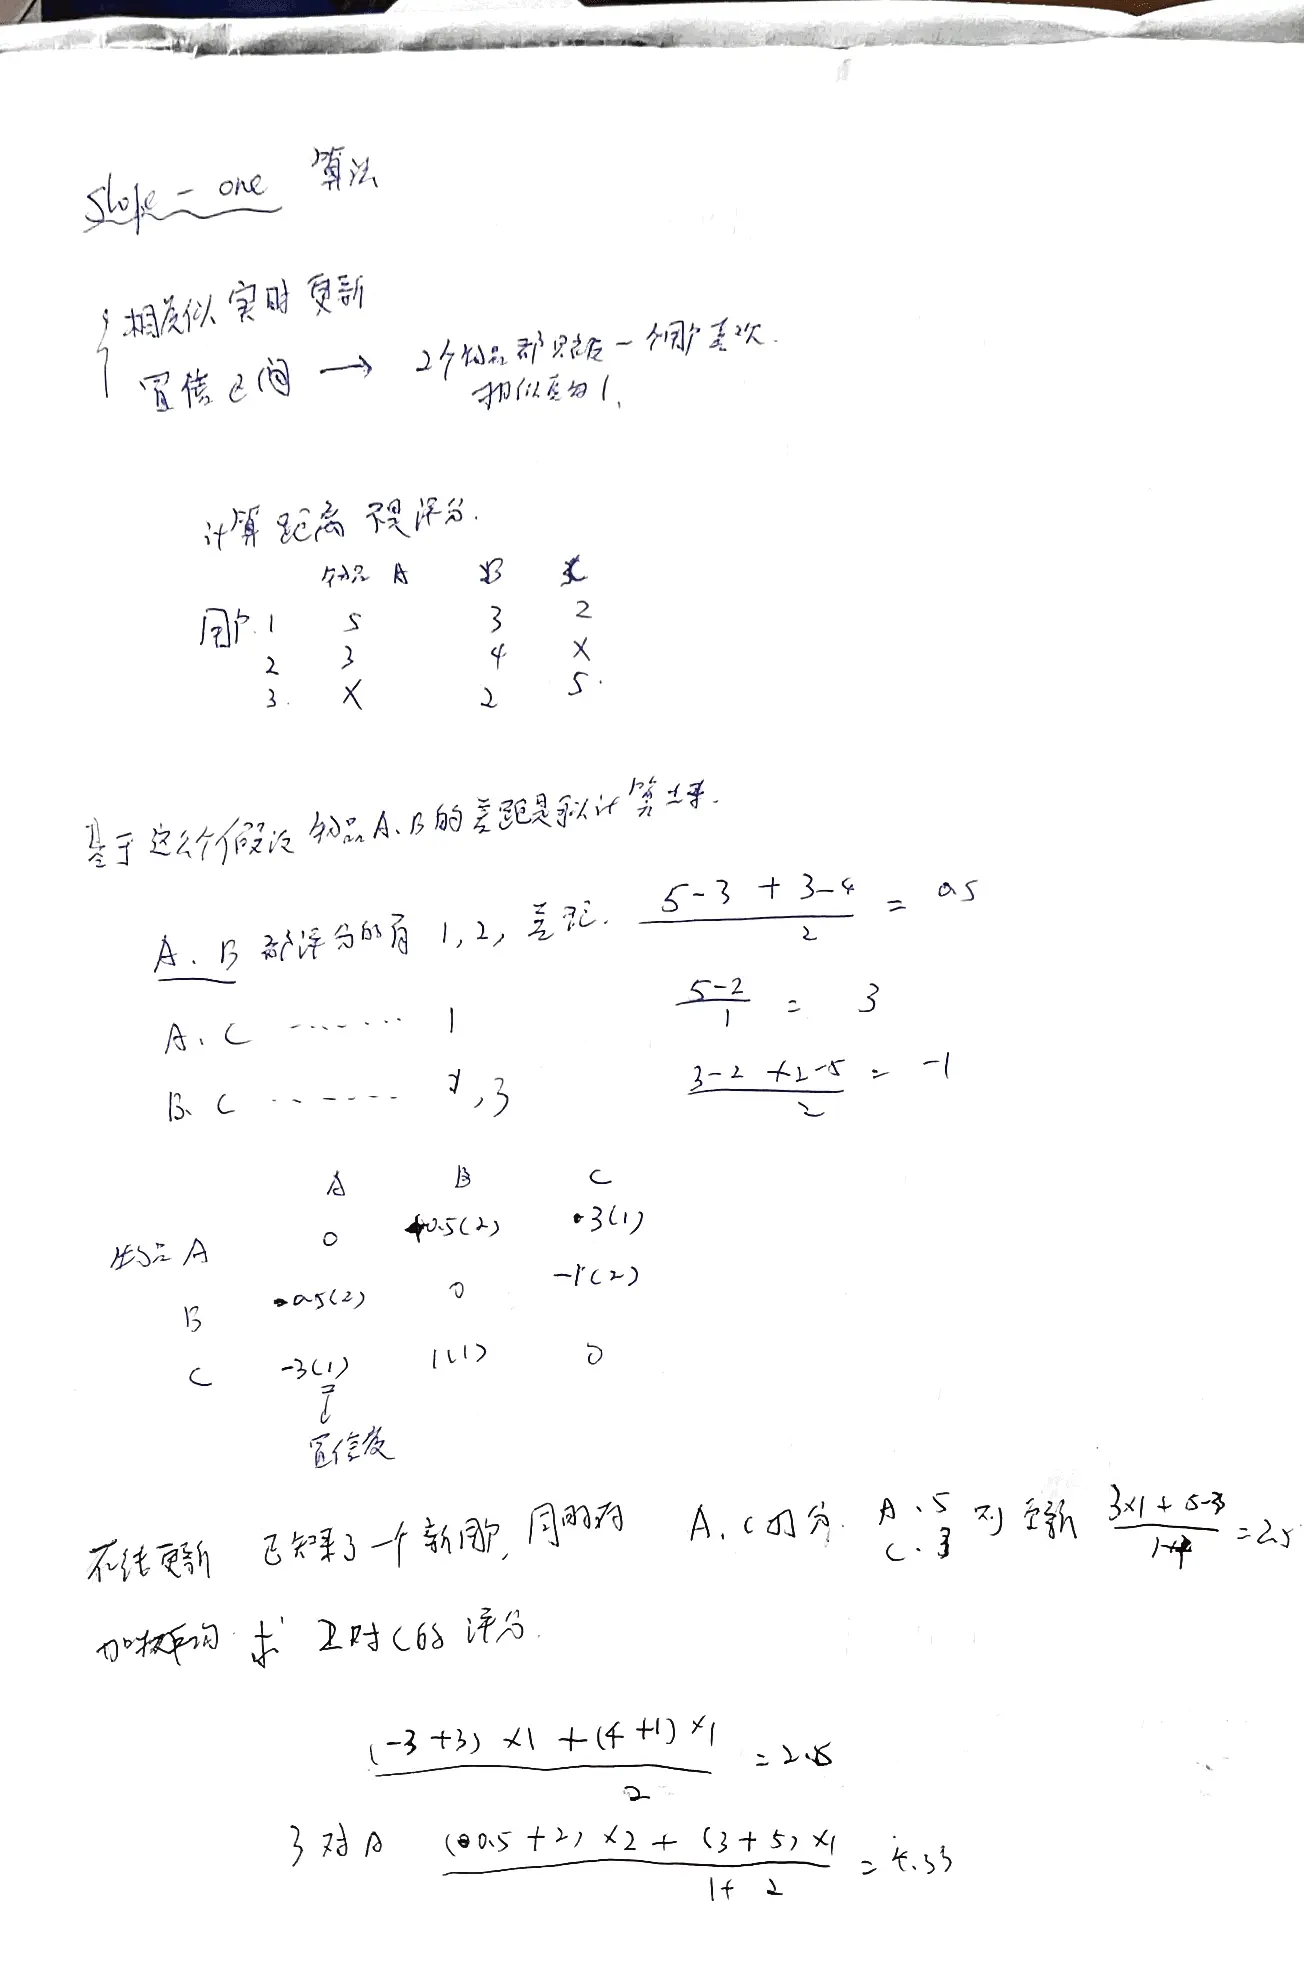 slope-one 算法
相似 实时更新
置信区间 → 2个物品都只被一个用户喜欢.
相似度为1.
计算距离 不是评分.
物品 A B C
用户 1 5 3 2
2 3 4 X
3. X 2 5.
基于这么个假设 物品A、B的差距是 计算出来.
A、B 都评分的有 1, 2, 差距. (5-3 + 3-4)/2 = 0.5
A、C ······· 1 (5-2)/1 = 3
B、C ······· 1, 3 (3-2 +2-5)/2 = -1
A B C
物品 A 0 0.5(2) 3(1)
B -0.5(2) 0 -1(2)
C -3(1) 1(1) 0
置信度
在线更新 已知来了一个新用户, 同时有 A、C的分. A、5 C、3 则 更新 (3×1 + 5-3)/(1+1) = 2.5
加权平均 求 2对C的评分.
((-3+3) ×1 + (4+1) ×1)/2 = 2.5
3对A ((0.5+2) ×2 + (3+5) ×1)/(1+2) = 4.33